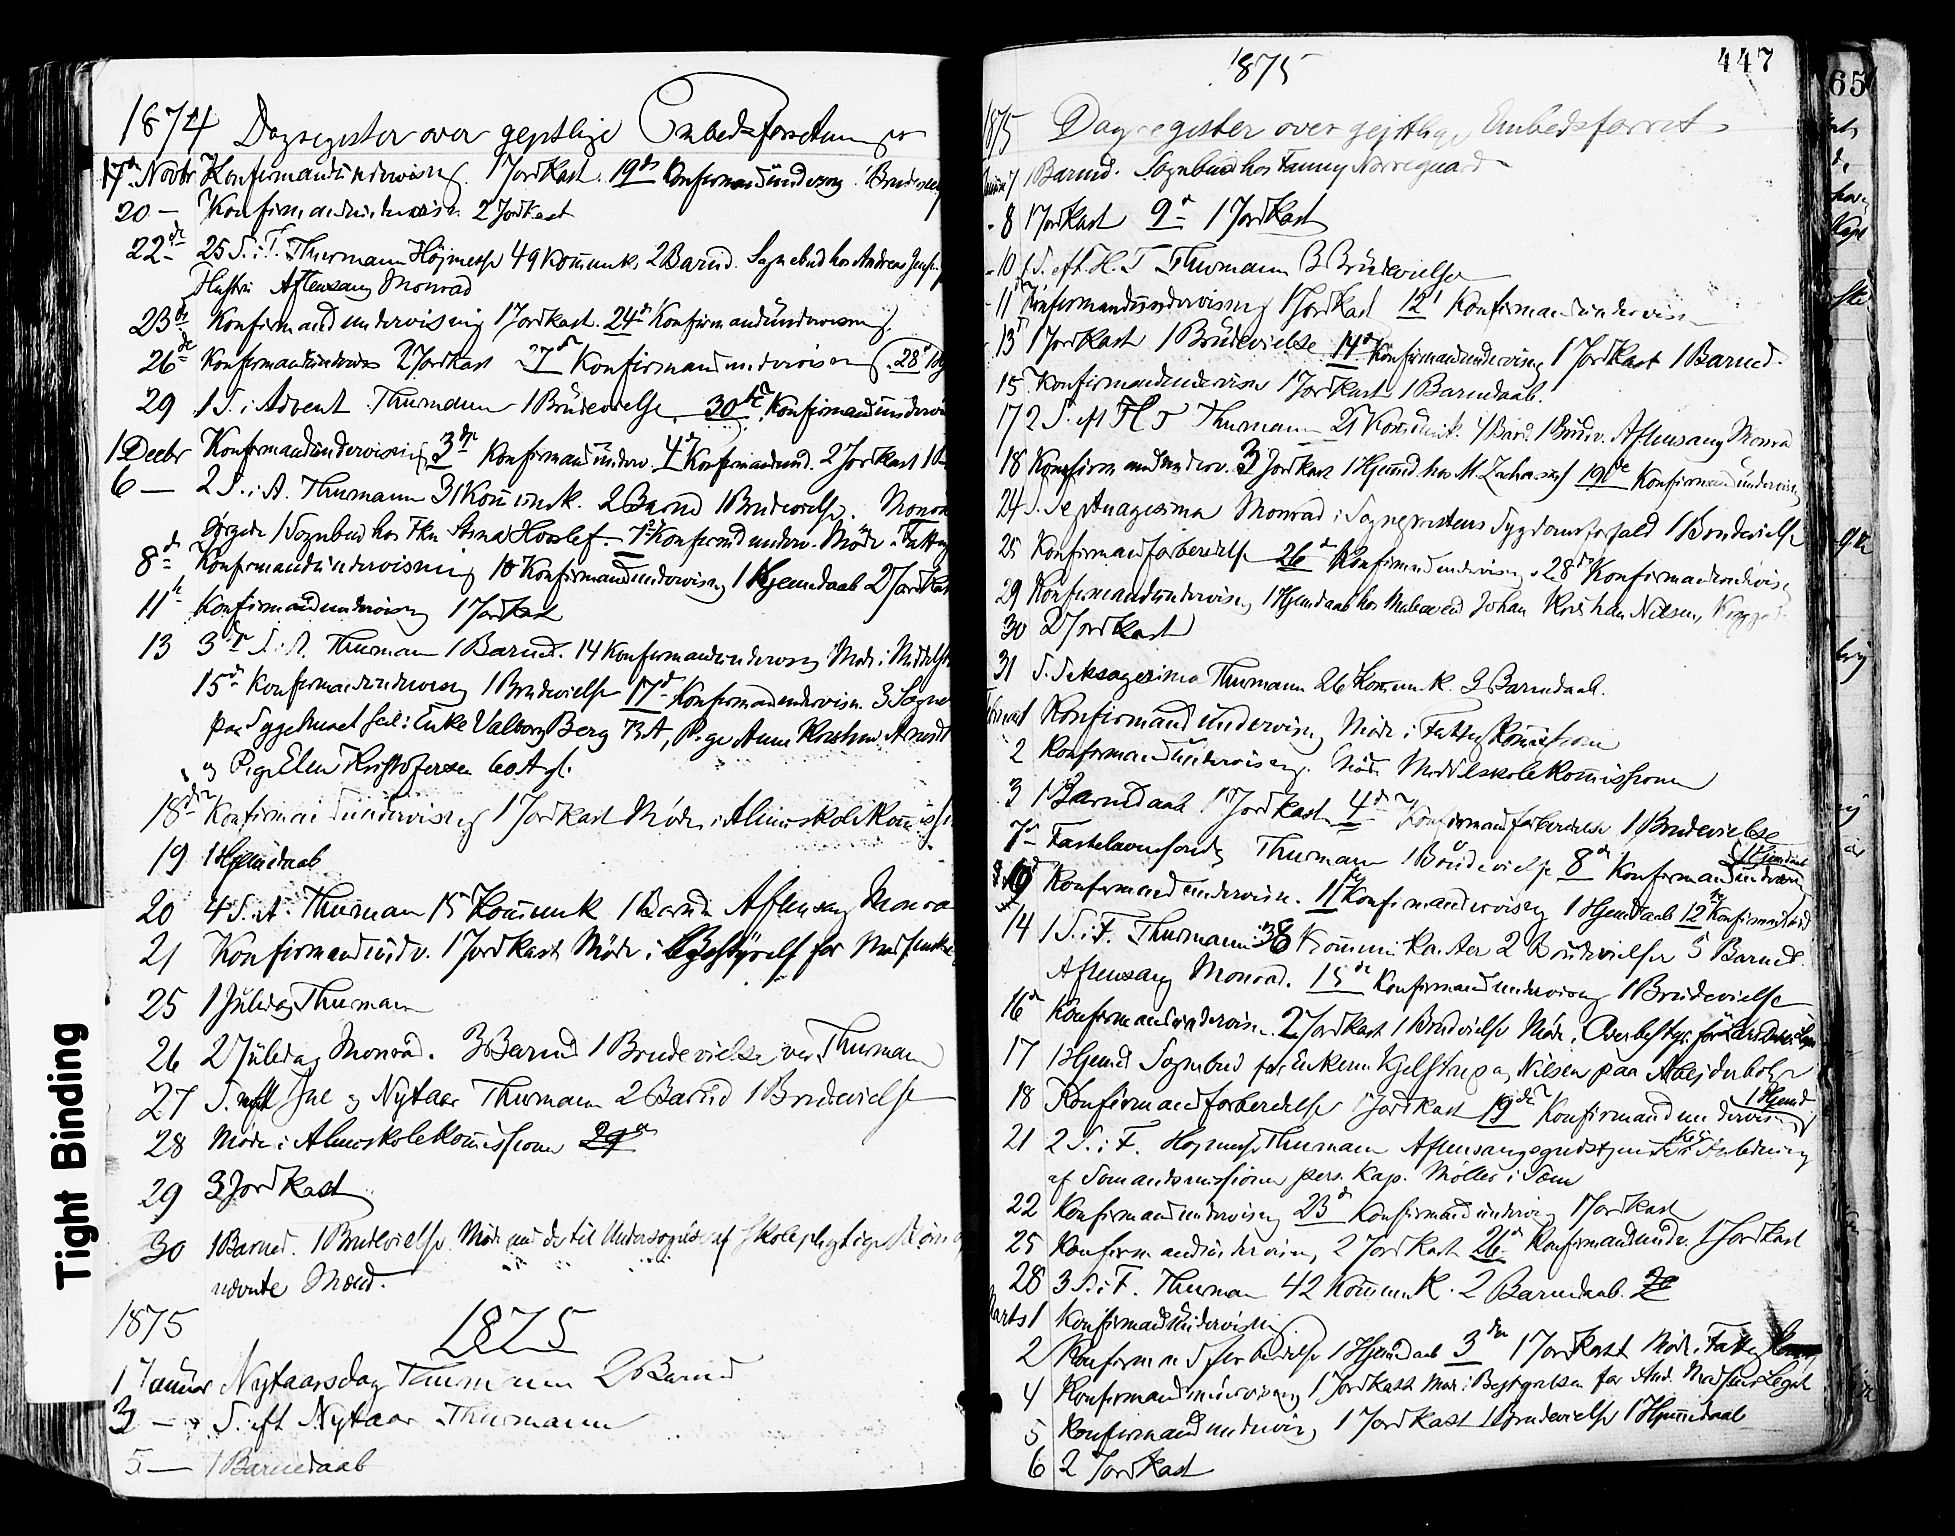 1874 Dagregister over geistlige Embedsforretninger
17de Novbr Konfirmandundervisning. 1 Jordkast. 19de Konfirmandundervisng.
20 — Konfirmandundervisn. 2 Jordkast
22de 25 S. i T. Thurmann Højmesse 49 Kommunk. 2 Barnd. Sognebud hos Andreas
Hustru Aftensang Monrad
23de Konfirmandundervisning 1 Jordkast. 24de Konfirmandundervisning.
26de Konfirmandunderv 2 Jordkast 27de Konfirmandundervisn. 28de
29 1 S. i Advent Thurmann 1 Brudevielse 30te Konfirmandunderv
1 Decbr Konfirmandundervisning 3die Konfirmandunderv. 4de Konfirmandund. 2 Jordkast
6 — 2 S. i A. Thurmann 31 Kommunk. 2 Barnd 1 Brudevielse. Monrad
1 Sognebud hos Fkn Anna 7de Konfirmdunderv. Møde i Fattig
8de Konfirmandundervisning 10 Konfirmandundervisng 1 Hjemdaab 2 Jordkast
11te Konfirmandundervisng 1 Jordkast
13 3die S. i A. Thurmann 1 Barnd. 14 Konfirmandundervisng Møde i Middelsk
15de Konfirmandundervisng 1 Brudevielse 17de Konfirmandundervisn. 3 Sogne
paa Sygehuset hos: Enke Valborg Berg 73 A, Pige Anne Kirstine
og Pige Ellen Kristofersen 60 A gl.
18de Konfirmandundervisng 1 Jordkast Møde i Almuskolekommissi
19 1 Hjemdaab
20 4 S. i A. Thurmann 15 Kommunk 1 Barnd Aftensang Monrad
21 Konfirmandundv. 1 Jordkast Møde i Bestyrelse for
25 1 Juledag Thurmann
26 2 Juledag Monrad. 3 Barnd 1 Brudevielse ved Thurmann
27 S. mell Jul og Nytaar Thurmann 2 Barnd 1 Brudevielse
28 Møde i Almuskolekommissionen 29de
29 3 Jordkast
30 1 Barnd. 1 Brudevielse Møde med de til Undersøgelse af skolepligtige Børn
nævnte Mænd.
1875 1875
1 Januar Nytaarsdag Thurmann 2 Barnd
3 — S. eft Nytaar Thurmann
5 — 1 Barnedaab
1875 447
1875 Dagregister over gejstlige Embedsforret
7 1 Barnd. Sognebud hos Fanny Nørregaard
- 8 1 Jordkast 9de 1 Jordkast
- 10 1 S. eft. H. T Thurmann 3 Brudevielser
- 11 Konfirmandundervisning 1 Jordkast 12te Konfirmandundervisn
13de 1 Jordkast 1 Brudevielse 14de Konfirmandundervisng 1 Jordkast 1 Barnd.
15 Konfirmandundervisn 1 Jordkast 1 Barnedaab.
17 2 S. eft H T Thurmann 21 Kommunk. 4 Barnd. 1 Brudev. Aftensang Monrad
18 Konfirmandunderv. 3 Jordkast 1 Hjemmd hos M. Zachariassen 19de Konfirmandundervisng
24 S. Septuagesima Monrad i Sognepræstens Sygdomsforfald 1 Brudevielse
25 Konfirmandforberedelse 26de Konfirmandundervisng 28de Konfirmandundervisn
29 Konfirmandundervisng 1 Hjemdaab hos Johan Kristian Nilsen,
30 2 Jordkast
31 S. Seksagesima Thurmann 26 Kommunk. 3 Barnedaab.
1 Konfirmandundervisng Møde i Fattigkommissionen
2 Konfirmandundervisng. Møde Middelskolekommissionen
3 1 Barnedaab 1 Jordkast 4de Konfirmandforberedelse 1 Brudevielse
7de Fastelavnssondg Thurmann 1 Brudevielse 8de Konfirmandunderv 1 Hjemdaab
9de Konfirmandundervisn. 11te Konfirmandundervisng 1 Hjemdaab 12te Konfirmandund
14 1 S. i F. Thurmann 38 Kommunikanter 2 Brudevielser 5 Barned.
Aftensang Monrad. 15de Konfirmandundervisng 1 Brudevielse
16de Konfirmandundervisn. 2 Jordkast 1 Brudvielse Møde i Overbestyr. for
17 1 Hjemd Sognebud for Enkerne Kjelstrup og Nilsen paa Arbejderbolig
18 Konfirmandforberedelse 1 Jordkast 19de Konfirmandundervisn 1 Hjemd
21 2 S. i F. Højmesse Thurmann Aftensangsgudstjeneste i Anledning
af Sømandsmissionen pers. Kap. Møller i Sæm
22 Konfirmandundervisng 23de Konfirmandunderving 1 Jordkast
25 Konfirmandundervisn, 2 Jordkast 26de Konfirmandundv. 1 Jordkast
28 3 S. i F. Thurmann 42 Kommunk. 2 Barnedaab.
Marts 1 Konfirmandundervisning
2 Konfirmandforberedelse 1 Hjemdaab 3die 1 Jordkast Møde i Fattig
4 Konfirmandundervisning 1 Jordkast Møde i Bestyrelsen for And. Madsens Legat
5 Konfirmandunderving 1 Jordkast 1 Brudevielse 1 Hjemmedaab
6 2 Jordkast
65
Tight Binding